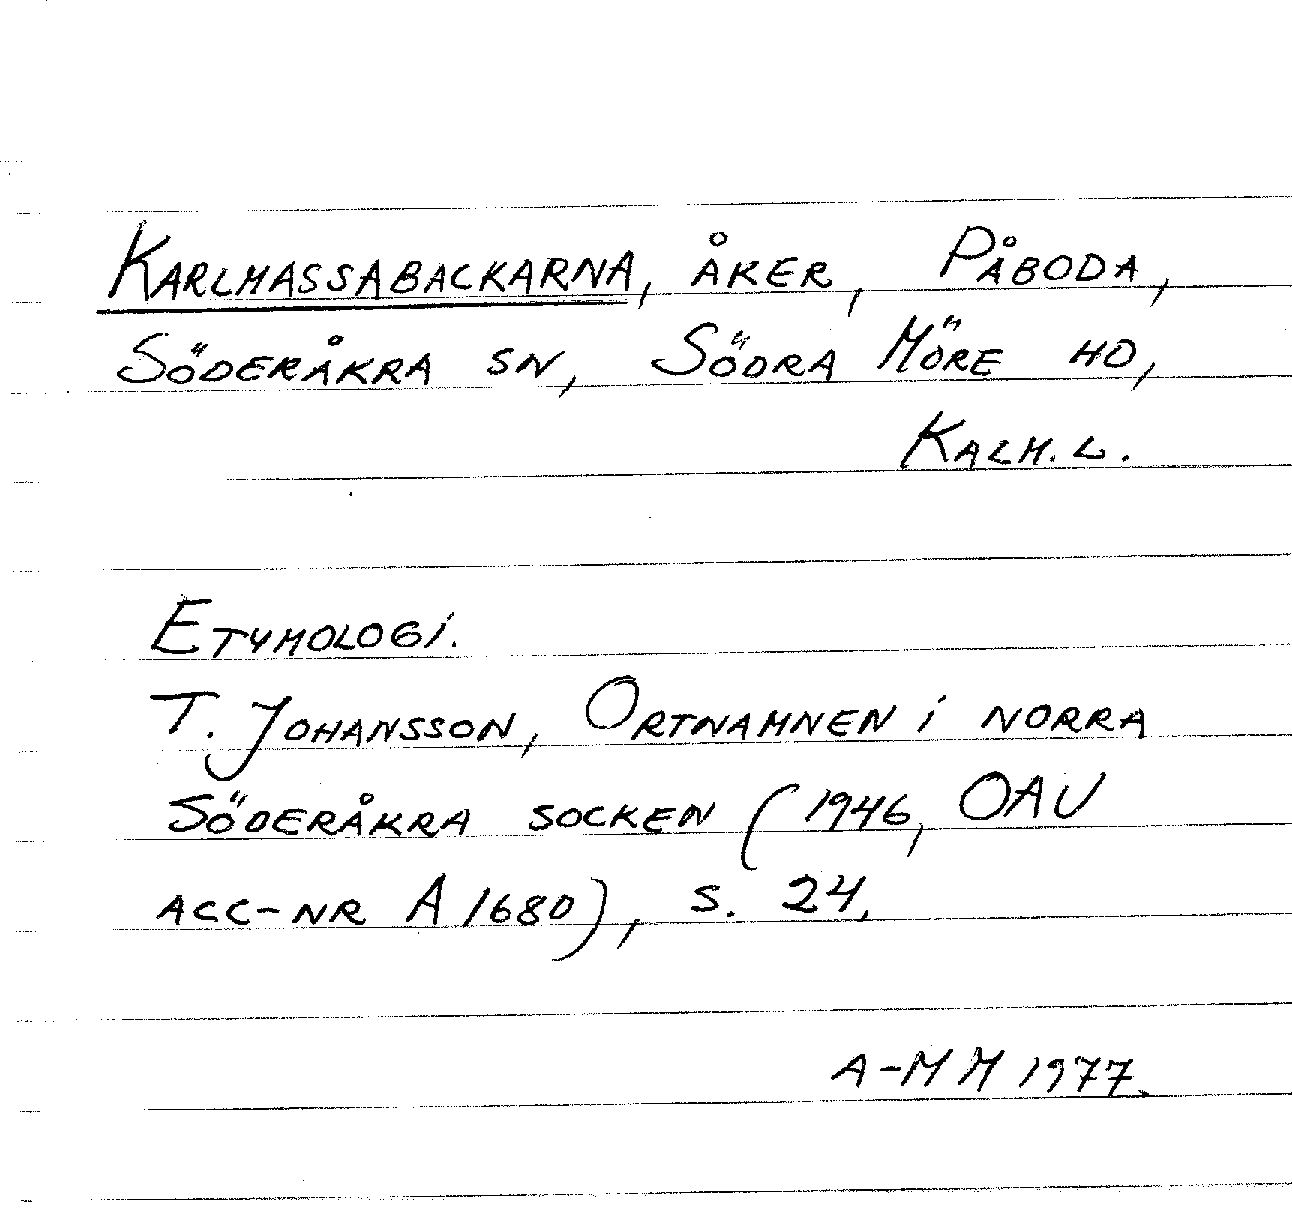 Karlmassabackarna, åker, Påboda,
Söderåkra sn, Södra Möre hd,
Kalm. l.
Etymologi.
T. Johansson, Ortnamnen i norra
Söderåkra socken (1946, OAU
acc-nr A 1680), s. 24.
A-MM 1977.